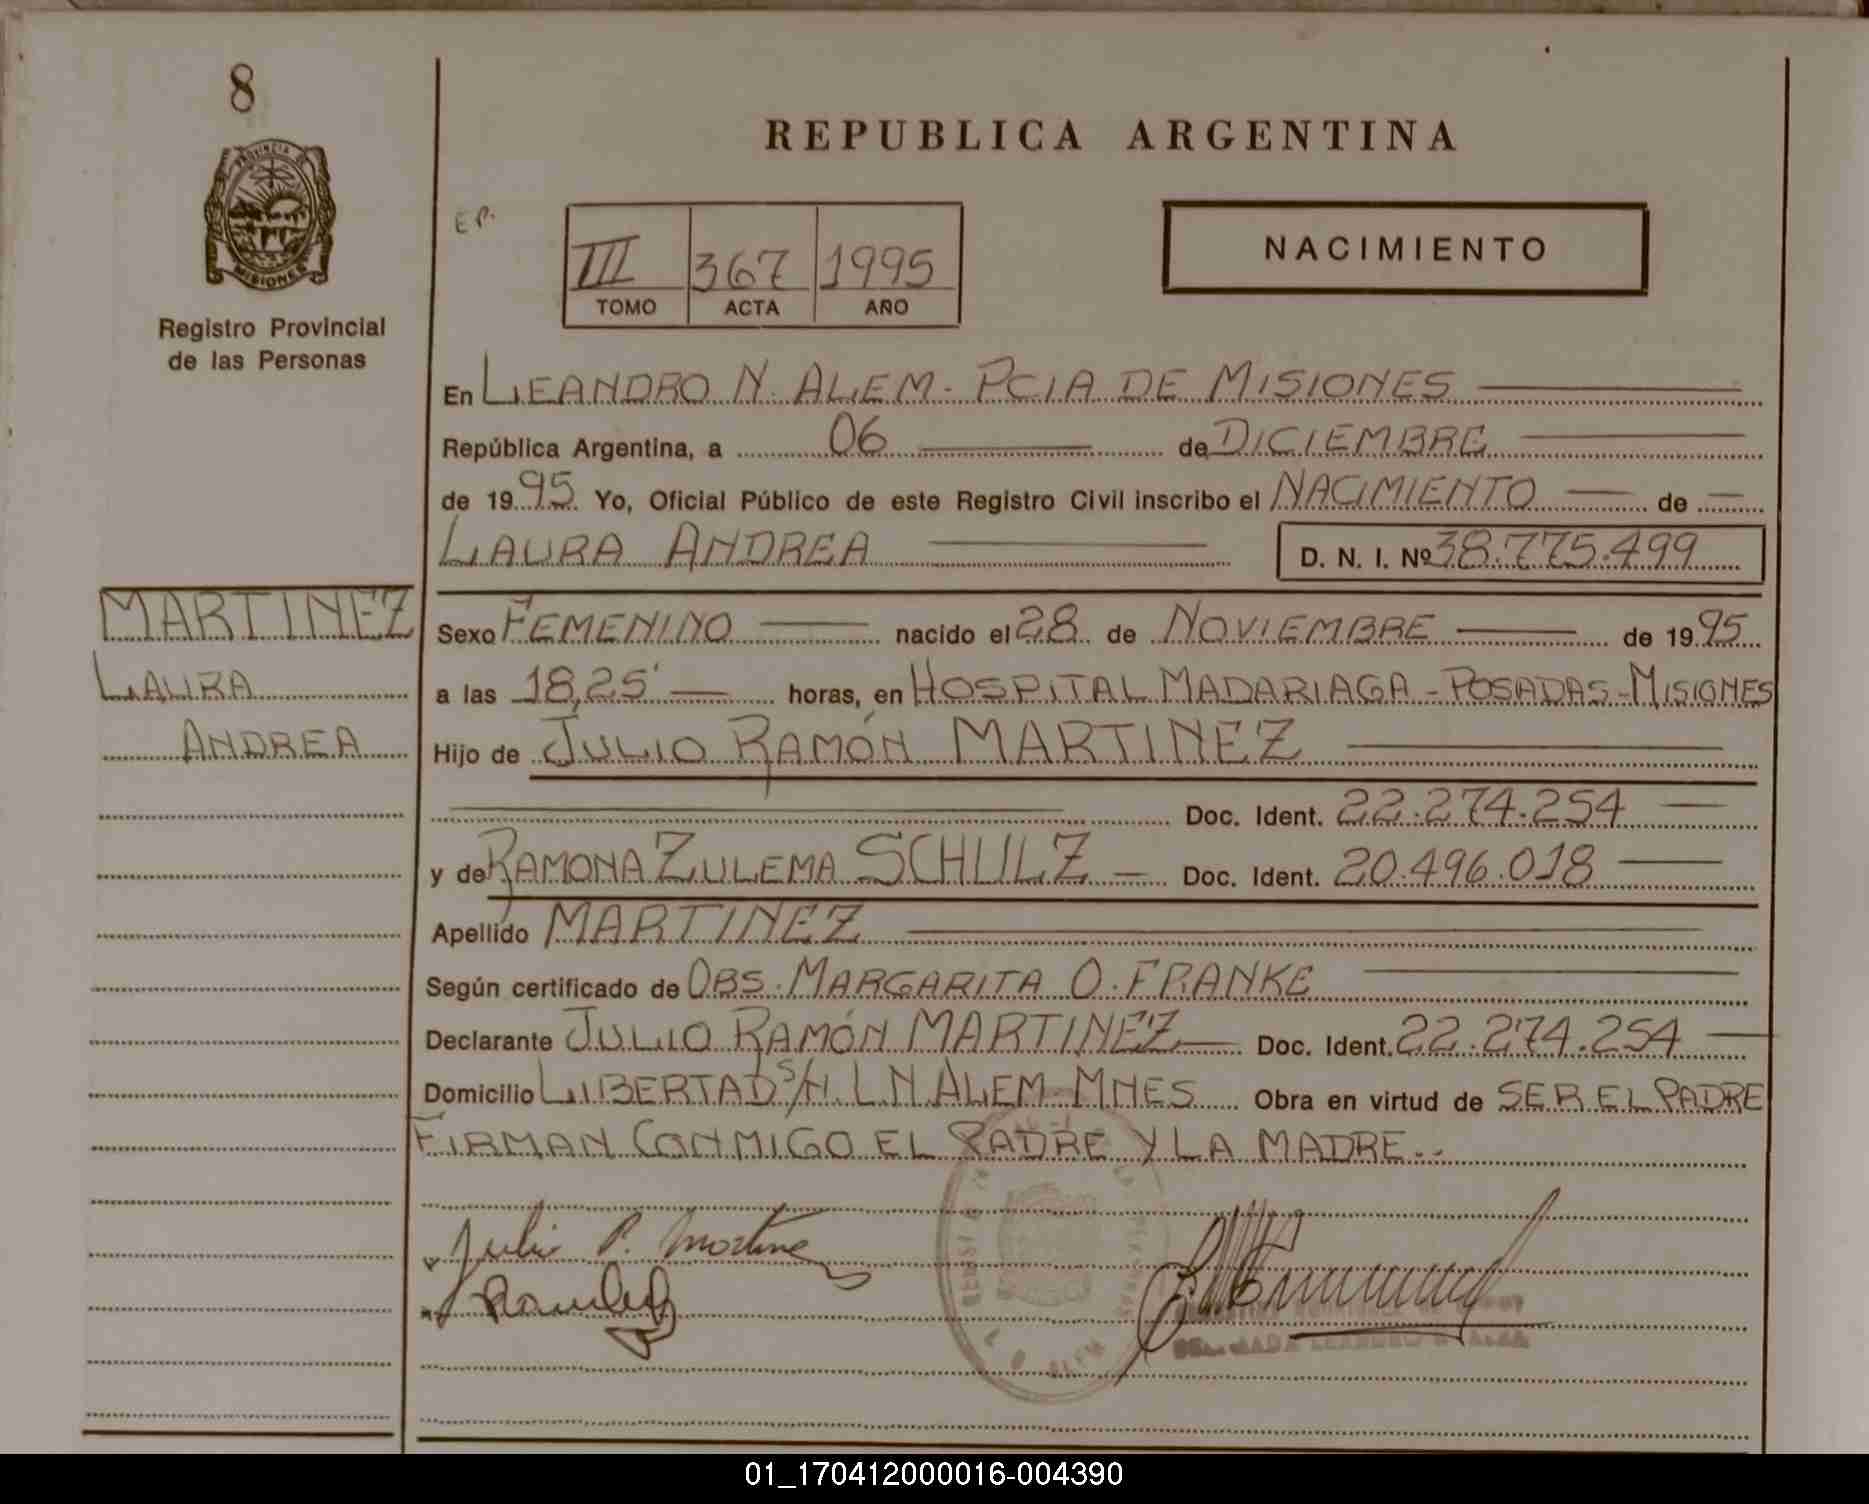 8
PROVINCIA DE
MISIONES
Registro Provincial
de las Personas
MARTINEZ
LAURA
ANDREA
REPUBLICA ARGENTINA
E P.
III 367 1995
TOMO ACTA AÑO
NACIMIENTO
En LEANDRO N. ALEM - PCIA DE MISIONES
República Argentina, a 06 de DICIEMBRE
de 1995 Yo, Oficial Público de este Registro Civil inscribo el NACIMIENTO de
LAURA ANDREA D. N. I. Nº 38.775.499
Sexo FEMENINO nacido el 28 de NOVIEMBRE de 1995
a las 18,25' horas, en HOSPITAL MADARIAGA - POSADAS - MISIONES
Hijo de JULIO RAMÓN MARTINEZ
Doc. Ident. 22.274.254
y de RAMONA ZULEMA SCHULZ Doc. Ident. 20.496.018
Apellido MARTINEZ
Según certificado de OBS. MARGARITA O. FRANKE
Declarante JULIO RAMÓN MARTINEZ Doc. Ident. 22.274.254
Domicilio LIBERTAD S/N. L N ALEM - MNES Obra en virtud de SER EL PADRE
FIRMAN CONMIGO EL PADRE Y LA MADRE..
Julio R. Martine
01_170412000016-004390